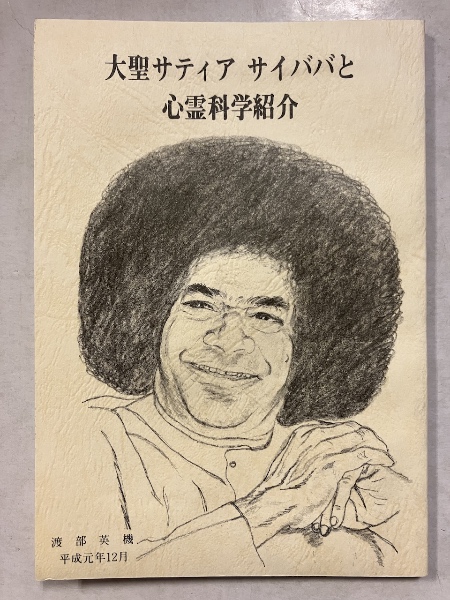 大聖サティア サイババと
心霊科学紹介
渡部英機
平成元年12月